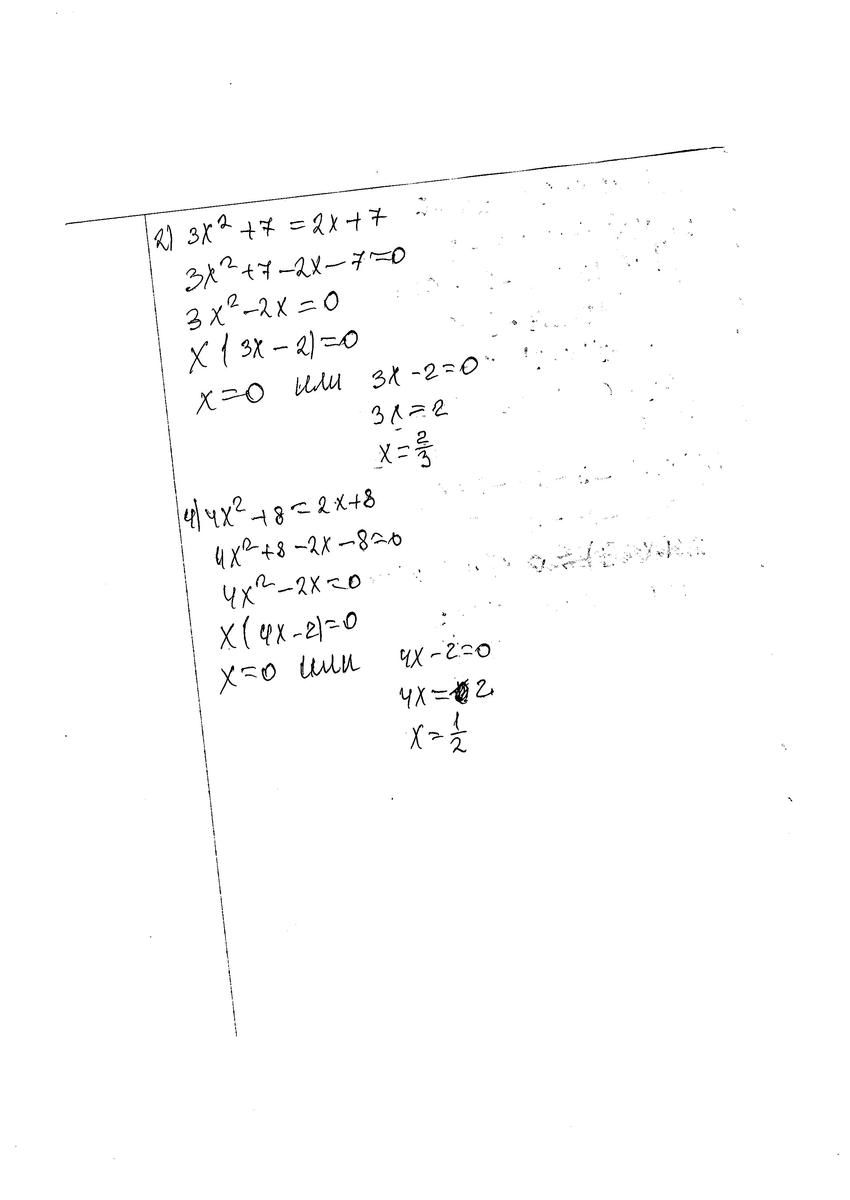 2) 3x² + 7 = 2x + 7
3x² + 7 - 2x - 7 = 0
3x² - 2x = 0
x (3x - 2) = 0
x = 0 или 3x - 2 = 0
3x = 2
x = 2/3
4) 4x² + 8 = 2x + 8
4x² + 8 - 2x - 8 = 0
4x² - 2x = 0
x (4x - 2) = 0
x = 0 или 4x - 2 = 0
4x = 2
x = 1/2